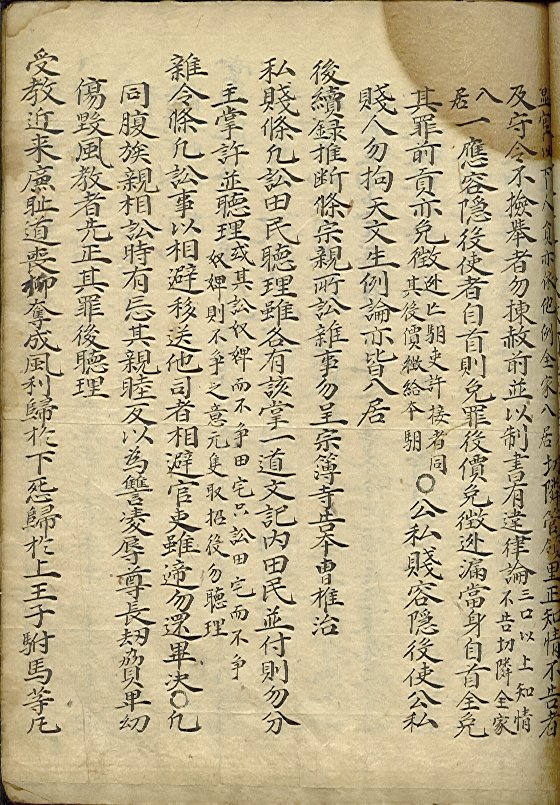 里正知情不告者
及守令不撿擧者勿揀赦前並以制書有違律論三口以上知情
不告切隣全家
入居一應容隱役使者自首則免罪後價免徵逃漏當身自首全免
其罪前貢亦免徵逃亡馹吏許接者同
其後價徵給本馹○公私賤容隱役使公私
賤人勿拘天文生例論亦皆入居
後續錄推断條宗親所訟雜事勿呈宗簿寺告本曹推治
私賤條凡訟田民聽理雖各有該掌一道文記内田民並付則勿分
主掌許並聽理或其訟奴婢而不爭田宅只訟田宅而不爭
奴婢則不爭之意元隻取招後勿聽理
雜令條凡訟事以相避移送他司者相避官吏雖遞勿還畢决○凡
同腹族親相訟時有忘其親睦反以為讐凌辱尊長刼奪卑幼
傷毀風教者先正其罪後聽理
受教近来廉耻道喪抑奪成風利歸於下怨歸於上王子駙馬等凡